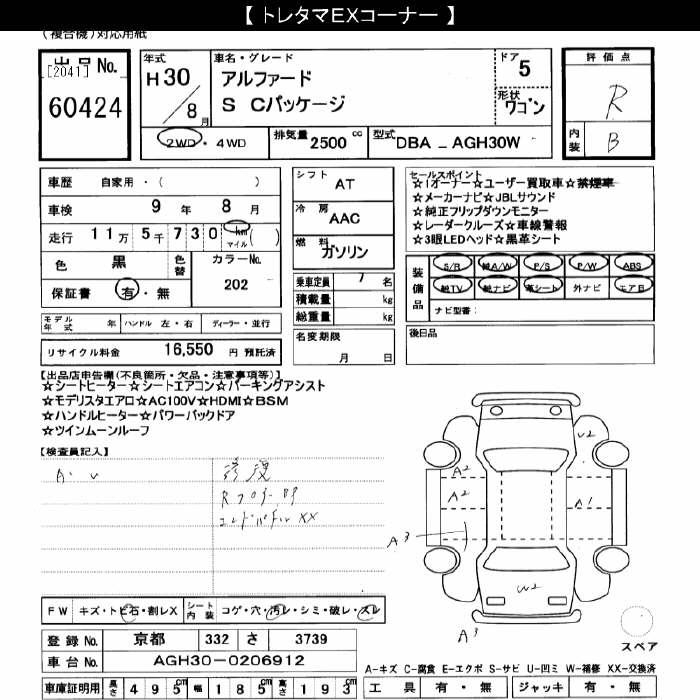 【 トレタマEXコーナー 】
(複合機)対応用紙
出品 No.
[2041]
60424
年式
H 30 / 8 月
車名・グレード
アルファード
S Cパッケージ
ドア 5
形状
ワゴン
2WD ・ 4WD
排気量 2500 cc
型式 DBA － AGH30W
評価点
R
内装 B
車歴 自家用 ・ ( )
車検 9 年 8 月
走行 11万 5千 730 km マイル ( )
色 黒 色替
カラーNo. 202
保証書 有 ・ 無
シフト AT
冷房 AAC
燃料 ガソリン
乗車定員 7 名
積載量 kg
総重量 kg
セールスポイント
☆1オーナー☆ユーザー買取車☆禁煙車
☆メーカーナビ☆JBLサウンド
☆純正フリップダウンモニター
☆レーダークルーズ☆車線警報
☆3眼LEDヘッド☆黒革シート
装備品
S/R 純A/W P/S P/W ABS
純TV 純ナビ 革シート 外ナビ エアB
ナビ型番:
モデル年式 年 ハンドル 左・右 ディーラー・並行
リサイクル料金 16,550 円 預託済
名変期限
月 日
後日品
【出品店申告欄(不良箇所・欠品・注意事項等)】
☆シートヒーター☆シートエアコン☆パーキングアシスト
☆モデリスタエアロ☆AC100V☆HDMI☆BSM
☆ハンドルヒーター☆パワーバックドア
☆ツインムーンルーフ
【検査員記入】
A・U
修復
Rフロアー
エンドパネル XX
U2
A2
A2
A1
A3
W2
A3
スペア
FW キズ・トビ石・割レX
シート内装 コゲ・穴・汚レ・シミ・破レ・スレ
登録 No. 京都 332 さ 3739
車台 No. AGH30-0206912
車庫証明用 長さ 495cm 幅 185cm 高さ 193cm
A-キズ C-腐食 E-エクボ S-サビ U-凹ミ W-補修 XX-交換済
工具 有 ・ 無 ジャッキ 有 ・ 無